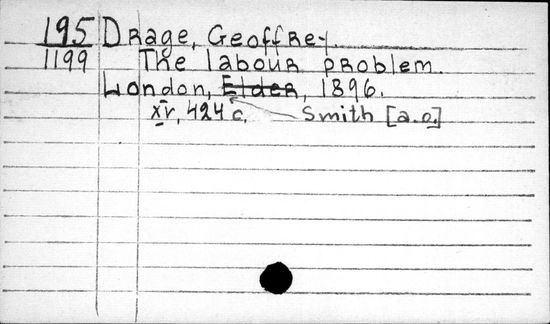 195 Drage, Geoffrey.
1199 The labour problem.
London, Elder, 1896.
XV, 424 c. Smith [a.o.]